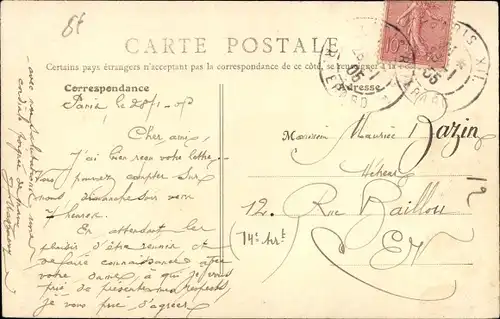 CARTE POSTALE
Certains pays étrangers n'acceptant pas la correspondance de ce côté, se renseigner à la
Correspondance
Adresse
Paris, le 28/1-05
Cher ami,
J'ai bien reçu votre lettre.
Vous pouvez compter sur
nous dimanche soir vers
7 heures.
En attendant le
plaisir d'être réunis et
de faire connaissance avec
votre dame, à qui je vous
prie de présenter mes respects,
je vous prie d'agréer
avec
cordiale poignée de main
Monsieur Maurice Bazin
12, Rue Baillou
(14e Arrt)
EV
12
10
PARIS XII
05